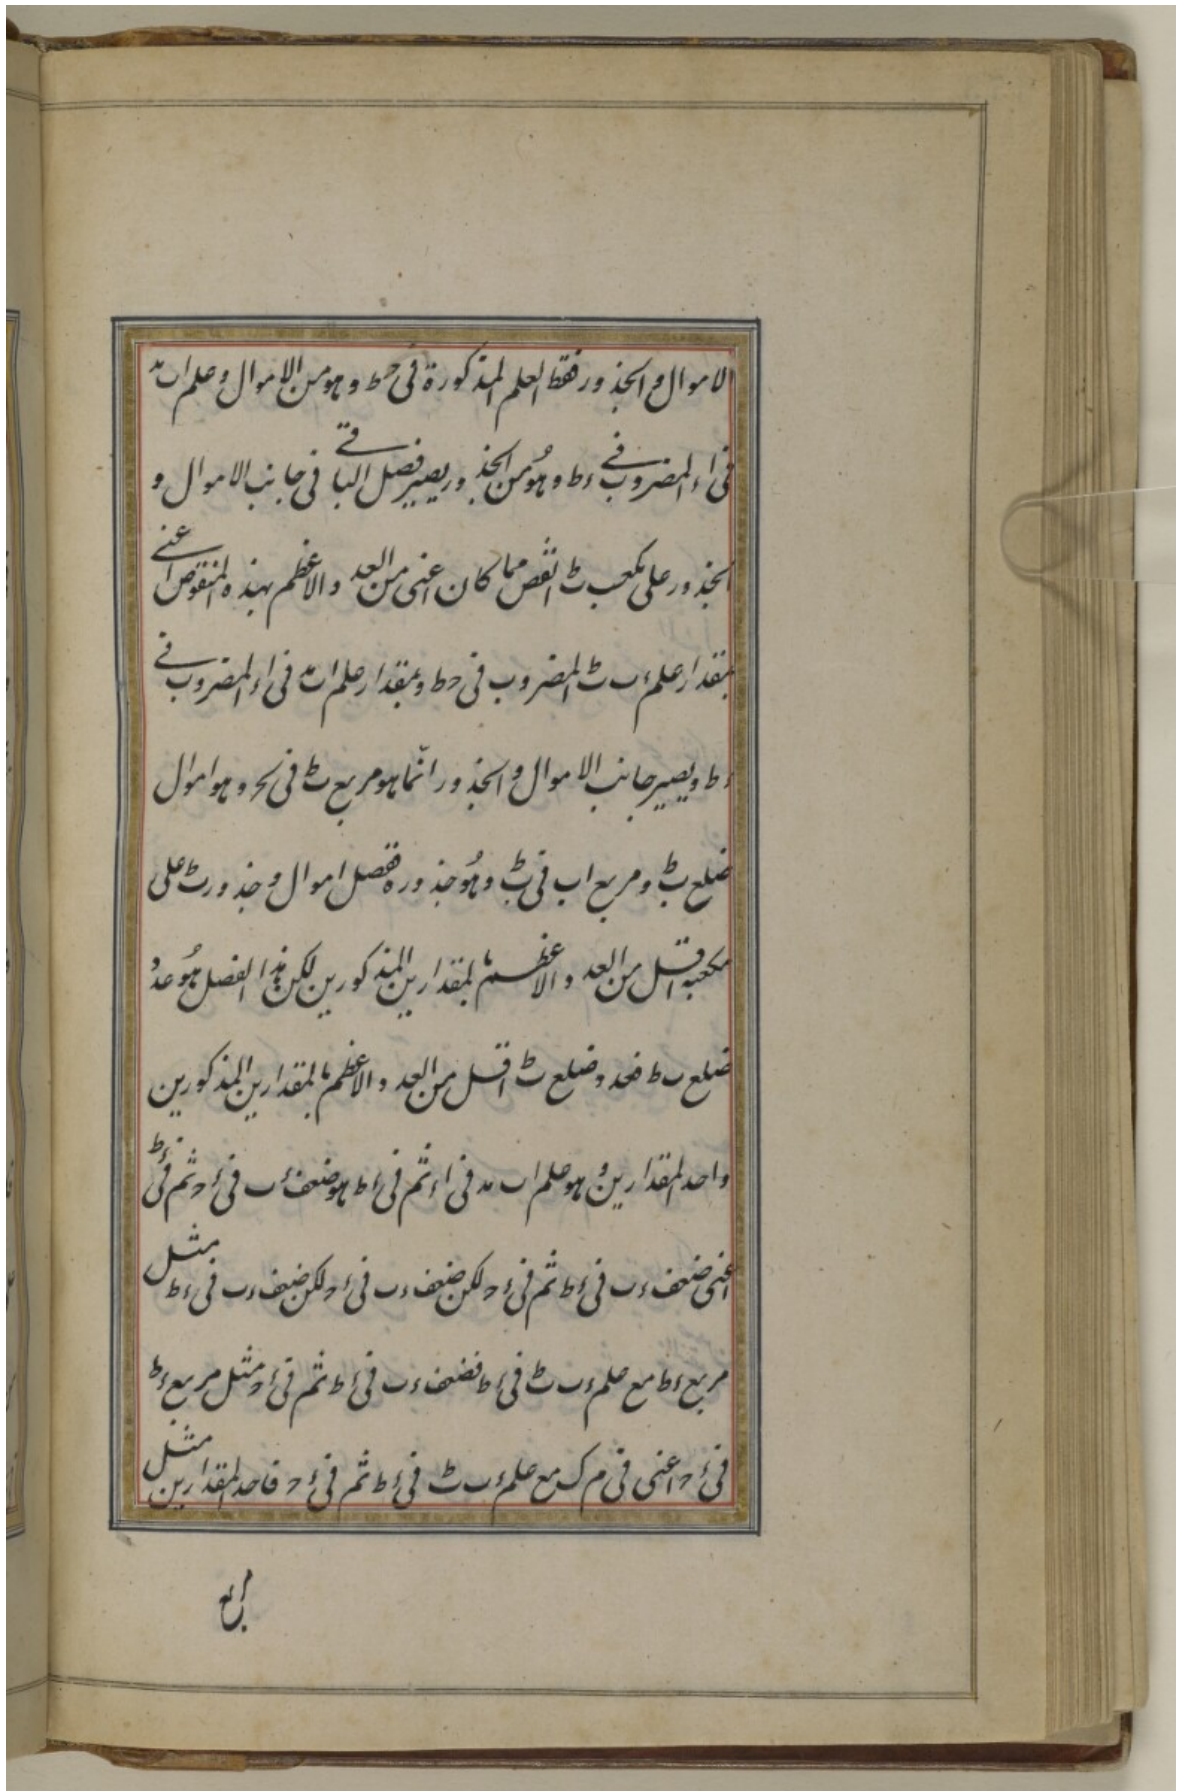 الاموال و الجذور فقط العلم المذكورة فى حط و هو من الاموال و علم اب مد
فى اء المضروب فى ءط و هُو من الجذور يصير فصل الباقے فى جانب الاموال و
الجذور على مكعب بط انقص مما كان اعنى من العدد و الاعظم بهذه المنقوص اعنے
بمقدار علم ءب بط المضروب فى حط و بمقدار علم اب مد فى اء المضروب فے
ءط و يصير جانب الاموال و الجذور انّما هو مربع بط فى لحر و هو اموال
ضلع بط و مربع اب فى بط و هُو جذوره ففصل اموال و جذور بط على
مكعبه اقل من العدد الاعظم بالمقدارين المذكورين لكن هذا الفصل هُو عدد
ضلع بط فعدد ضلع بط اقل من العدد الاعظم بالمقدارين المذكورين
واحد المقدارين و هو علم اب مد فى اء ثم فى ءط هو ضعف ءب فى ءح ثم فى ءط
اعنى ضعف ءب فى ءط ثم فى ءح لكن ضعف ءب فى ءح لكن ضعف ءب فى ءط مثل
مربع ءط مع علم ءب بط فى ءط فضعف ءب فى ءط ثم فى ءح مثل مربع ءط
فى ءح اعنى فى م ك مع علم ءب بط فى ءط ثم فى ءح فاحد المقدارين مثل
مربع